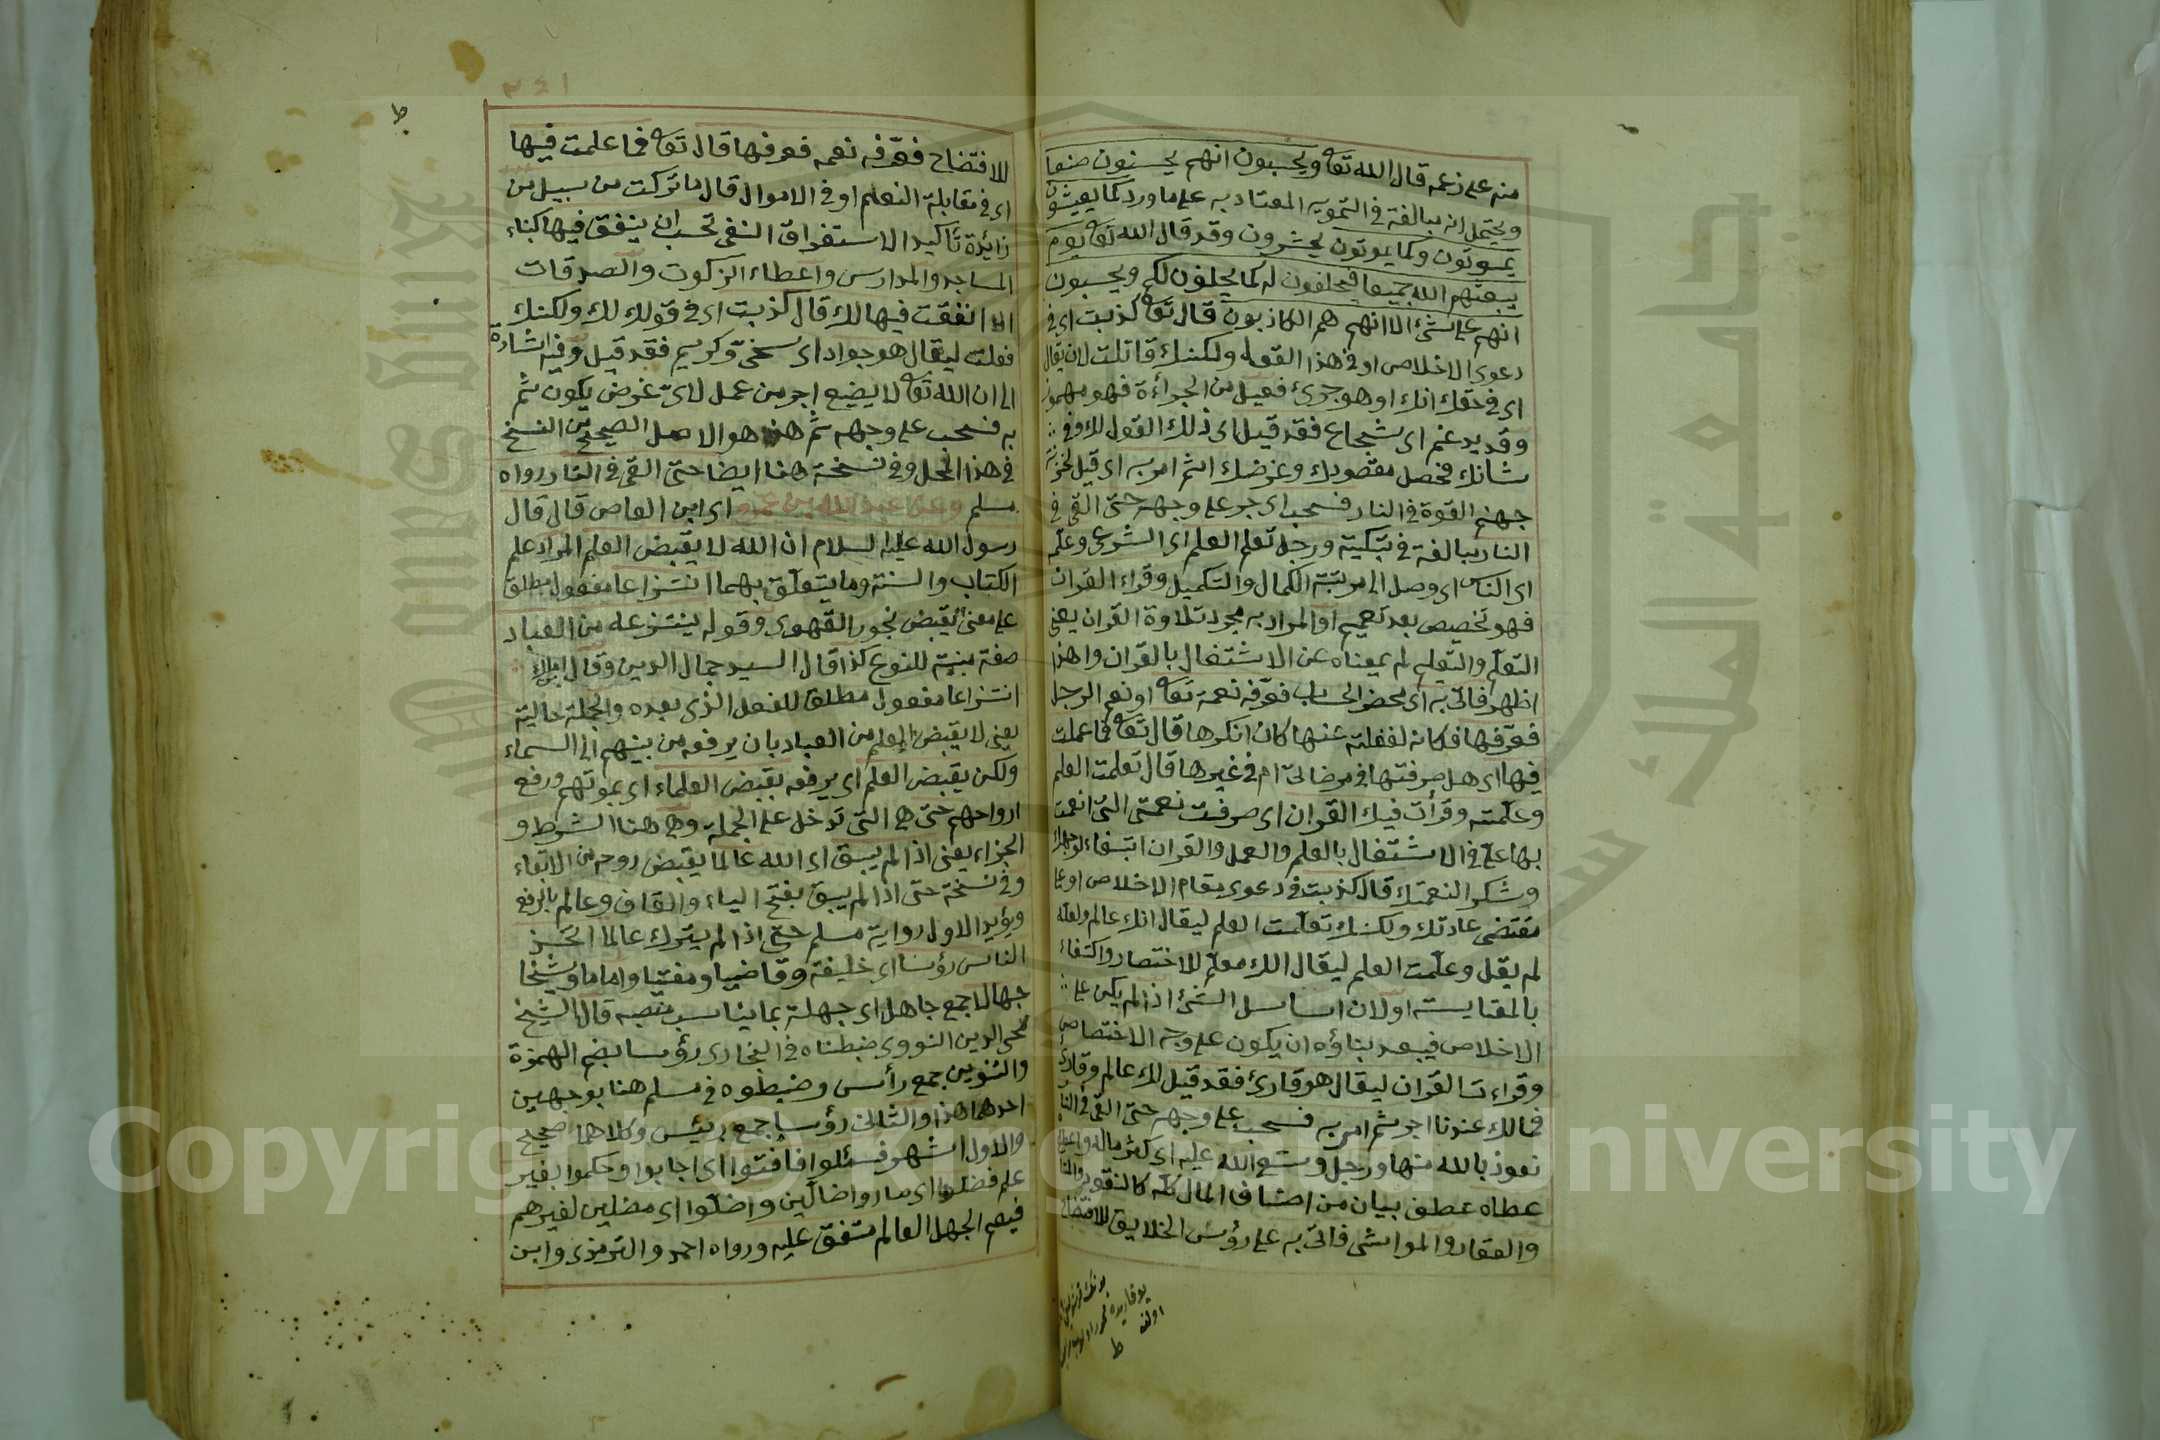 منه على زعمه قال الله تعه ويحسبون انهم يحسنون صنعا
ويحتمل انه مبالغة في التمويه المعتاد به على ما ورد كما يعيشون
يموتون وكما يموتون يحشرون وقد قال الله تعه يوم
يبعثهم الله جميعا فيحلفون له كما يحلفون لكم ويحسبون
انهم على شئ الا انهم هم الكاذبون قال تعه كذبت اى في
دعوى الاخلاص او في هذا القول ولكنك قاتلت لان يقال
اى في حقك انك او هو جرئ فعيل من الجرأة فهو مهموز
وقد يدغم اى شجاع فقد قيل اى ذلك القول لك وفي
شانك فحصل مقصودك وغرضك اثم امر به اى قيل لخزنة
جهنم القوة في النار فسحب اى جر على وجهه حتى القى في
النار مبالغة في تبكيته ورجل تعلم العلم اى الشرعى وعلّم
اى الناس اى وصل الى مرتبة الكمال والتكميل وقراء القران
فهو تخصيص بعد تعميم او المراد به مجرد تلاوة القران يعنى
التعلّم والتعليم لم يمنعاه عن الاشتغال بالقران واهذا
اظهر فاتى به اى محضر الحساب فعرّفه نعمة تعه او نعم الرجل
فعرفها فكانه لغفلته عنها كان انكرها قال تعه فما عملت
فيها اى هل صرفتها في مرضاتى ام في غيرها قال تعلمت العلم
وعلّمته وقرأت فيك القران اى صرفت نعمتى التى انعمت
بها علىّ في الاشتغال بالعلم والعمل والقران ابتغاء لوجهك
وشكر النعمتك قال كذبت في دعوى مقام الاخلاص او على
مقتضى عادتك ولكنك تعلّمت العلم ليقال انك عالم ولعلّه
لم يقل وعلّمت العلم ليقال انك معلّم للاختصار واكتفاء
بالمقايسة او لان اساس الشئ اذا لم يكن على
الاخلاص فيبعد بناؤه ان يكون على وجه الاختصاص
وقراءت القران ليقال هو قارئ فقد قيل لك عالم وقارئ
فمالك عندنا اجر ثم امر به فسحب على وجهه حتى القى في النار
نعوذ بالله منها ورجل وسّع الله عليه اى كثّر ماله واعطاه
عطاه عطف بيان من اصناف المال كلّه كالنقود
والعقار والمواشى فاتى به على رؤس الخلايق للافتضاح
اولنه
ط
٢٤١
ط
للافتضاح فعرّفه نعمه فعرفها قال تعه فما علمت فيها
اى في مقابلة النعم او في الاموال قال ما تركت من سبيل من
زائدة تأكيدا لاستغراق النفى تحب ان ينفق فيها كبناء
المساجد والمدارس واعطاء الزكوت والصدقات
الا انفقت فيها لك قال كذبت اى في قولك لك ولكنك
فعلت ليقال هو جواد اى سخىّ وكريم فقد قيل وفيه اشارة
الى ان الله تعه لا يضيع اجر من عمل لاىّ غرض يكون ثم
به فسحب على وجهه ثم هذا هو الاصل الصحيح من النسخ
في هذا المحل وفي نسخة هنا ايضا حتى القى في النار رواه
مسلم وعن عبد الله بن عمرو اى ابن العاص قال قال
رسول الله عليه السلام ان الله لا يقبض العلم المراد علم
الكتاب والسنة وما يتعلّق بهما انتزاعا مفعول مطلق
على معنى يقبض نحو رجع القهقرى وقوله ينتزعه من العباد
صفة مبنية للنوع كذا قال السيد جمال الدين وقال ابن الملك
انتزاعا مفعول مطلق للفعل الذى بعده والجملة حالية
يعنى لا يقبض العلم من العباد بان يرفعه من بينهم الى السماء
ولكن يقبض العلم اى يرفعه بقبض العلماء اى بموتهم ورفع
ارواحهم حتى هى التى تدخل على الجملة وهى هنا الشرط و
الجزاء يعنى اذا لم يبق اى الله عالما يقبض روحه من الابقاء
وفي نسخة حتى اذا لم يبق بفتح الياء والقاف وعالم بالرفع
ويؤيد الاول رواية مسلم حتى اذا لم يترك عالما اتخذ
الناس رؤسا اى خليفة وقاضيا ومفتيا واماما وشيخا
جهالا جمع جاهل اى جهلة بما يناسب منصبه قال الشيخ
محى الدين النووى ضبطناه في البخارى رؤسا بضم الهمزة
والتنوين جمع رأس وضبطوه في مسلم هنا بوجهين
احدهما هذا والثانى رؤسا جمع رئيس وكلاهما صحيح
والاول اشهر فسئلوا فافتوا اى اجابوا وحكموا بغير
علم فضلوا اى صاروا ضالّين واضلّوا اى مضلين لغيرهم
فيعم الجهل العالم متفق عليه ورواه احمد والترمذى وابن
Copyright © King Saud University
جامعة الملك سعود
King Saud University